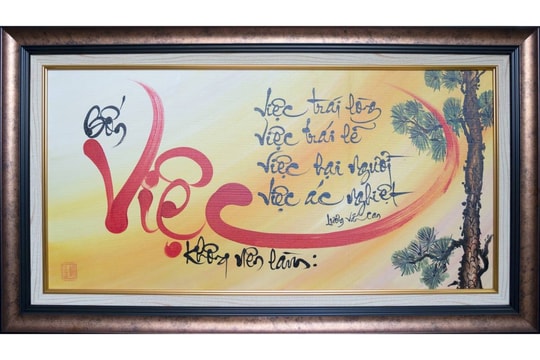 Bốn
Việc
Không nên làm:
Việc trái lòng
Việc trái lẽ
Việc hại người
Việc ác nghiệt
Lương Văn Can